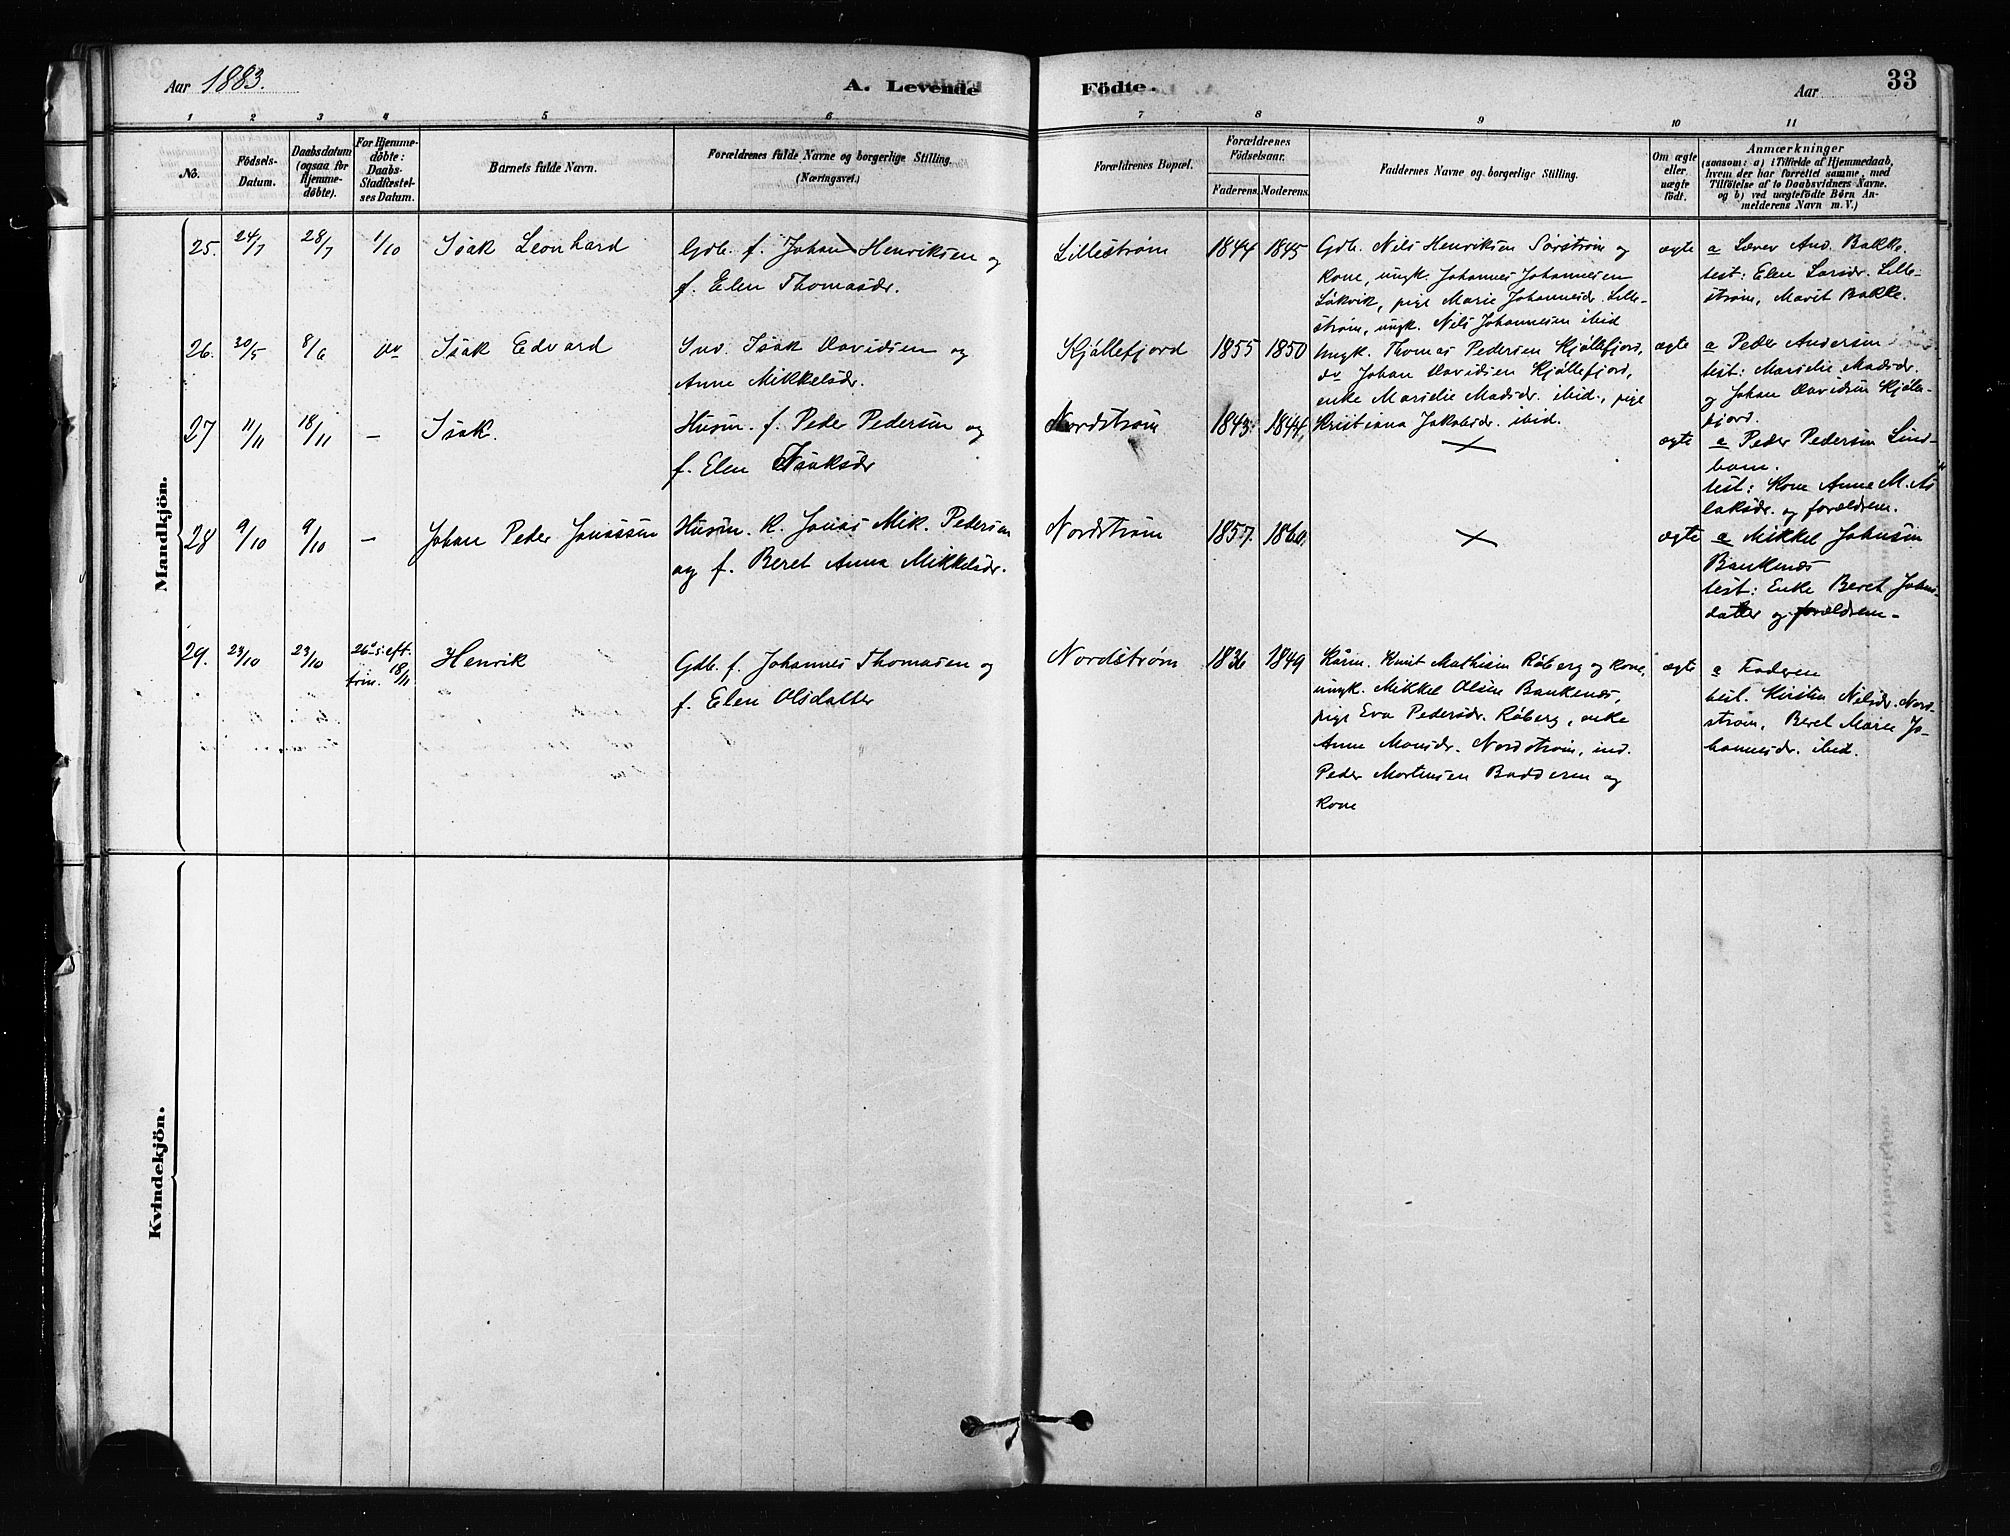 Aar 1883.
A. Levende Födte.
Aar
33
1 2 3 4 5 6 7 8 9 10 11
No.
Födsels-
Datum.
Daabsdatum
(ogsaa for
Hjemme-
döbte).
For Hjemme-
döbte:
Daabs-
Stadfæstel-
ses Datum.
Barnets fulde Navn.
Forældrenes fulde Navne og borgerlige Stilling.
(Næringsvei.)
Forældrenes Bopæl.
Forældrenes
Födselsaar.
Faderens. Moderens.
Faddernes Navne og borgerlige Stilling.
Om ægte
eller
uægte
födt.
Anmærkninger
(saasom: a) i Tilfælde af Hjemmedaab,
hvem der har forrettet samme, med
Tilföielse af to Daabsvidners Navne.
og b) ved uægtefödte Börn An-
melderens Navn m. V.)
Mandkjön.
25. 24/7 28/7 1/10 Isak Leonhard
Gdb. f. Johan Henriksen og
f. Elen Thomasdr.
Lillestrøm 1844 1845
Gdb. Nils Henriksen Sørstrøm og
kone, ungk. Johannes Johannesen
Løkvik, pige Marie Johannesdr. Lille-
strøm, ungk. Nils Johannesen ibid
ægte
a Lærer And. Bakke.
test: Elen Larsdr. Lille-
strøm, Marit Bakke.
26. 30/5 8/6 do Isak Edvard
Inv. Isak Davidsen og
Anne Mikkelsdr.
Kjøllefjord 1855 1850
Ungk. Thomas Pedersen Kjøllefjord,
do Johan Davidsen Kjøllefjord,
enke Marselie Madsdr. ibid., pige
Kristiana Jakobsdr. ibid.
ægte
a Peder Andersen
test: Marselie Madsdr.
og Johan Davidsen Kjølle-
fjord.
27 11/11 18/11 – Isak.
Husm. f. Peder Pedersen og
f. Elen Isaksdr
Nordstrøm 1843. 1844.
ægte
a Peder Pedersen Lind-
bom.
test: Kone Anne M. As-
laksdr. og forældrene.
28 9/10 9/10 – Johan Peder Jonassen
Husm. k. Jonas Mik. Pedersen
og f. Beret Anna Mikkelsdr.
Nordstrøm 1857. 1860.
ægte
a Mikkel Johnsen
Bankenæs
test: Enke Beret Johns-
datter og forældrene.
29. 23/10 23/10 26d s. eft.
trin. 18/11
Henrik
Gdb. f. Johannes Thomasen og
f. Elen Olsdatter
Nordstrøm 1836 1849
Kårm. Knut Mathisen Røberg og kone,
ungk. Mikkel Olsen Bankenæs,
pige Eva Pedersdr. Røberg, enke
Anne Monsdr. Nordstrøm, ind.
Peder Mortensen Badderen og
kone
ægte
a Faderen
test. Kirsten Nilsdr. Nord-
strøm, Beret Marie Jo-
hannesdr. ibid.
Kvindekjön.